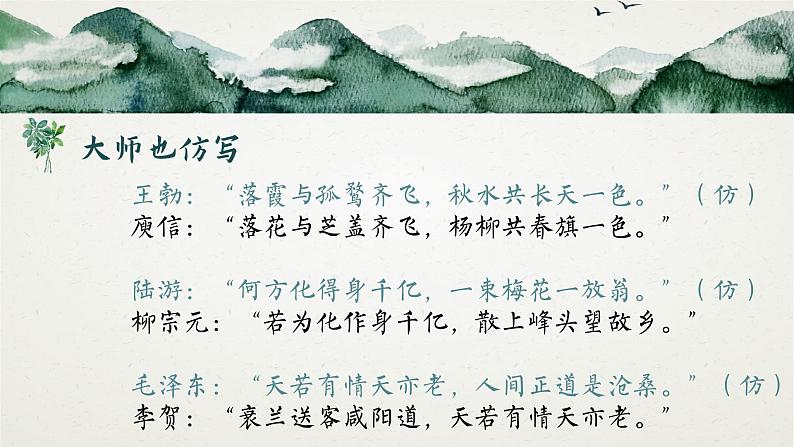 大师也仿写
王勃：“落霞与孤鹜齐飞，秋水共长天一色。”（仿）
庾信：“落花与芝盖齐飞，杨柳共春旗一色。”
陆游：“何方化得身千亿，一束梅花一放翁。”（仿）
柳宗元：“若为化作身千亿，散上峰头望故乡。”
毛泽东：“天若有情天亦老，人间正道是沧桑。”（仿）
李贺：“衰兰送客咸阳道，天若有情天亦老。”